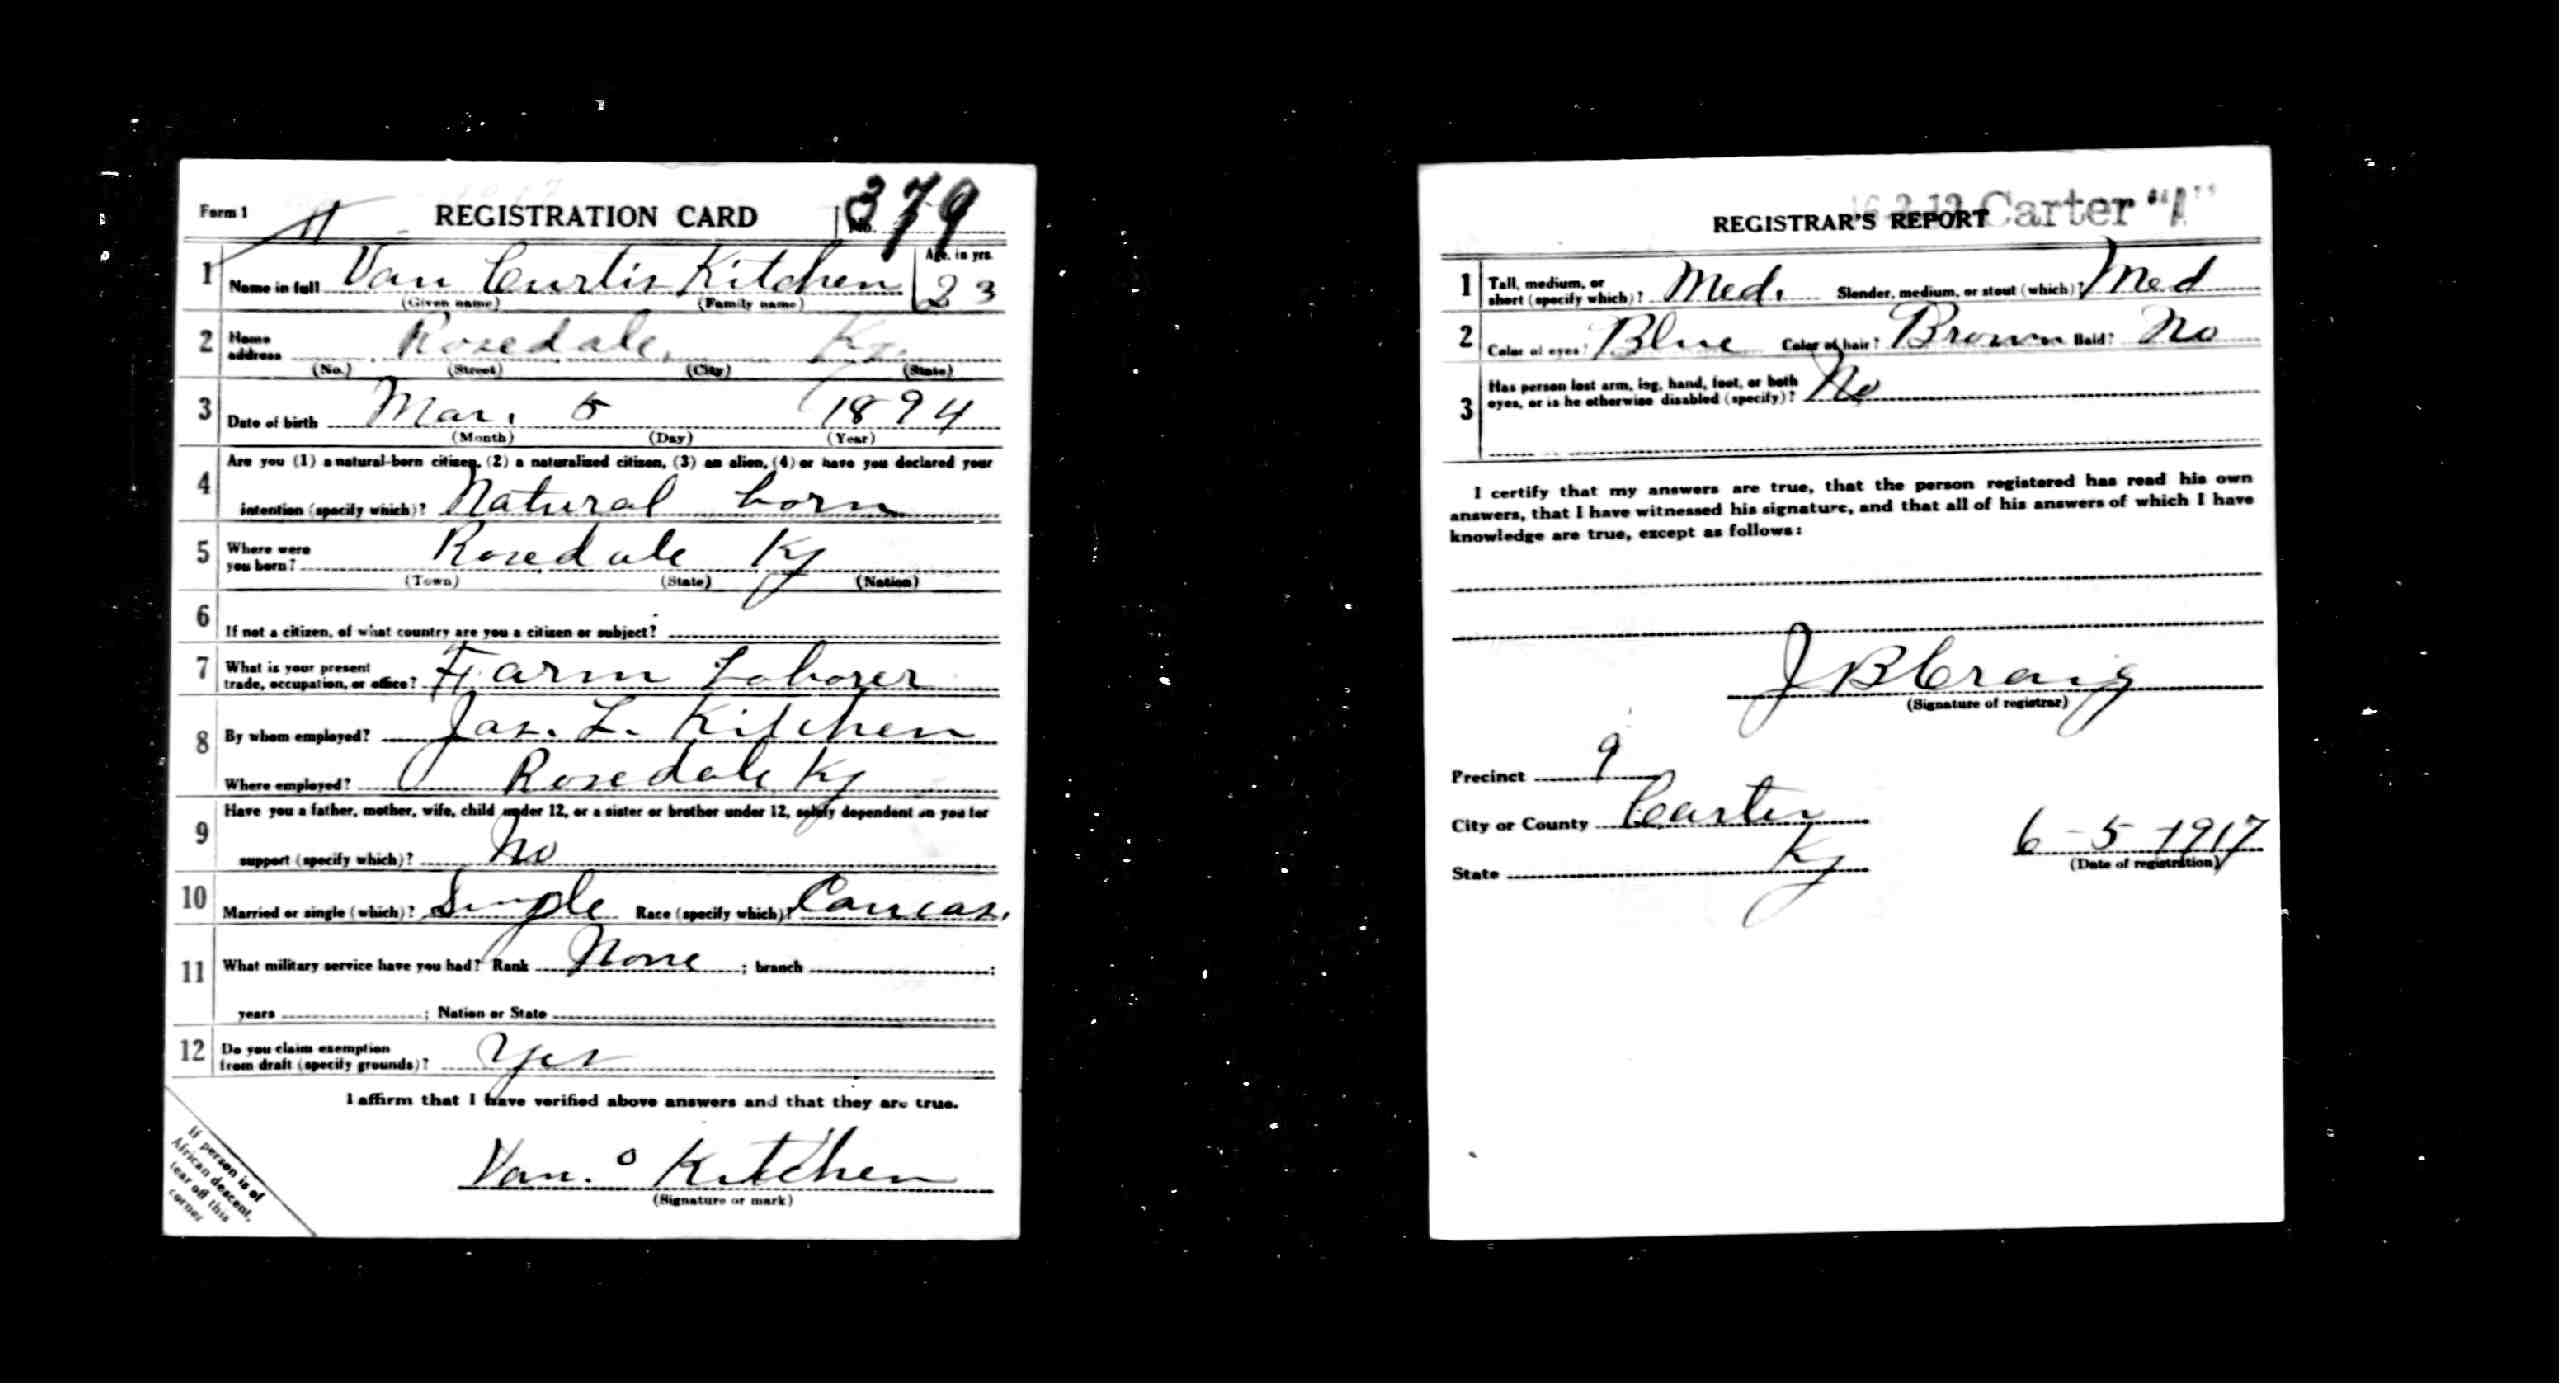 Form 1
REGISTRATION CARD
No. 379
1 Name in full Van Curtis Kitchen
(Given name) (Family name)
Age, in yrs.
23
2 Home address Rosedale, Ky.
(No.) (Street) (City) (State)
3 Date of birth Mar. 5 1894
(Month) (Day) (Year)
4 Are you (1) a natural-born citizen, (2) a naturalized citizen, (3) an alien, (4) or have you declared your
intention (specify which)? Natural born
5 Where were
you born? Rosedale Ky
(Town) (State) (Nation)
6 If not a citizen, of what country are you a citizen or subject?
7 What is your present
trade, occupation, or office? Farm Laborer
8 By whom employed? Jas. L. Kitchen
Where employed? Rosedale Ky
9 Have you a father, mother, wife, child under 12, or a sister or brother under 12, solely dependent on you for
support (specify which)? No
10 Married or single (which)? Single Race (specify which)? Caucas.
11 What military service have you had? Rank None ; branch ;
years ; Nation or State
12 Do you claim exemption
from draft (specify grounds)? Yes
I affirm that I have verified above answers and that they are true.
Van. Kitchen
(Signature or mark)
If person is of
African descent,
tear off this
corner
Carter "A"
REGISTRAR'S REPORT
1 Tall, medium, or
short (specify which)? Med. Slender, medium, or stout (which)? Med
2 Color of eyes? Blue Color of hair? Brown Bald? No
3 Has person lost arm, leg, hand, foot, or both
eyes, or is he otherwise disabled (specify)? No
I certify that my answers are true, that the person registered has read his own
answers, that I have witnessed his signature, and that all of his answers of which I have
knowledge are true, except as follows:
J B Craig
(Signature of registrar)
Precinct 9
City or County Carter
State Ky
6-5-1917
(Date of registration)